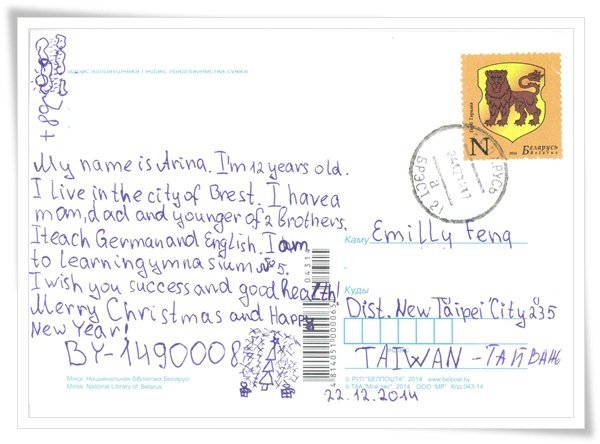 My name is Arina. I'm 12 years old.
I live in the city of Brest. I have a
mom, dad and younger of 2 brothers.
I teach German and English. I am
to learning gymnasium №5.
I wish you success and good health!
Merry Christmas and Happy
New Year!
BY-1490008
Мінск. Нацыянальная бібліятэка Беларусі
Minsk. National Library of Belarus
N
2014
Беларусь
Belarus
Каму
Emilly Feng
Куды
Dist. New Taipei City 235
TAIWAN - ТАЙВАНЬ
© РУП "БЕЛПОШТА", 2014 www.belpost.by
22.12.2014